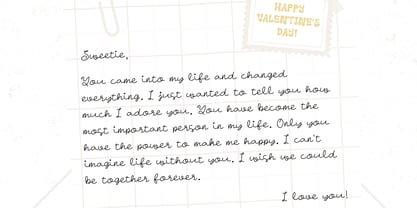 HAPPY
VALENTINE'S
DAY!
Sweetie,
You came into my life and changed
everything. I just wanted to tell you how
much I adore you. You have become the
most important person in my life. Only you
have the power to make me happy. I can't
imagine life without you. I wish we could
be together forever.
I love you!